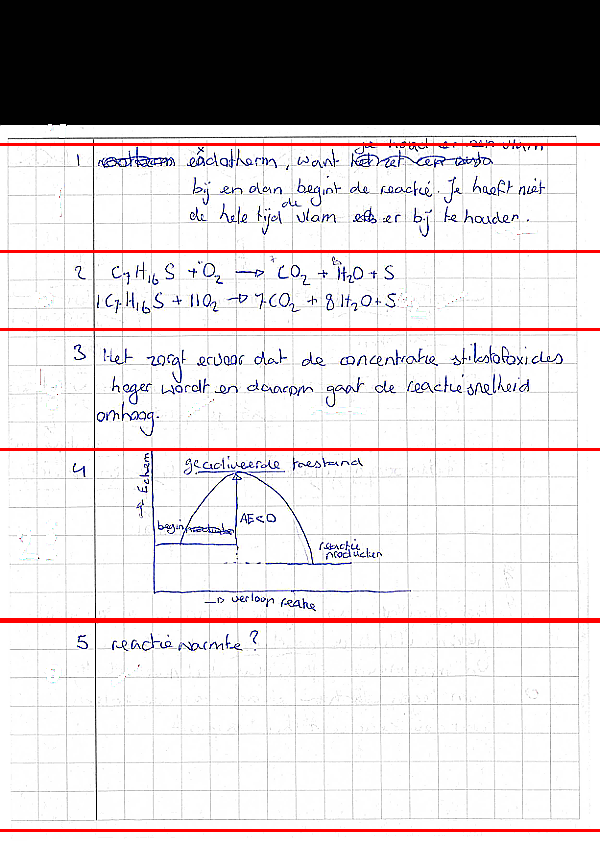 je houd er een vlam
1 exotherm, want
bij en dan begint de reactie. Je hoeft niet
de hele tijd de vlam er bij te houden.
2 C7H16S + O2 → 7CO2 + 8H2O + S
1C7H16S + 11O2 → 7CO2 + 8H2O + S
3 Het zorgt ervoor dat de concentratie stikstofoxides
hoger wordt en daarom gaat de reactiesnelheid
omhoog.
4 geactiveerde toestand
→ Echem
begin
ΔE<0
reactie
producten
→ verloop reatie
5 reactiewarmte?